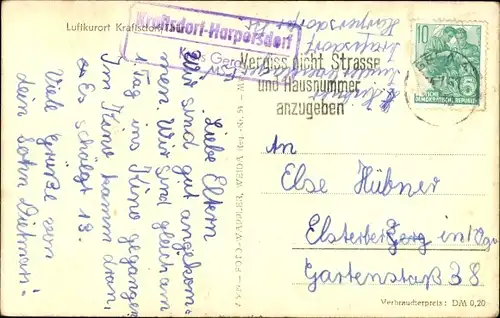 Luftkurort Kraftsdorf
Kraftsdorf-Harpersdorf
Kreis Gera
Vergiss nicht Strasse
und Hausnummer
anzugeben
10
DEUTSCHE
DEMOKRATISCHE REPUBLIK
5
Liebe Eltern
Wir sind gut angekom-
men. Wir sind gleich am
1 Tag ins Kino gegangen
Im Kino kamm dran,
Es schlägt 13.
Viele Grüße von
dein Sohn Dietmar.
An
Else Hübner
Elsterberg in/Vgo
Gartenstaß 38
Verbraucherpreis: DM 0,20